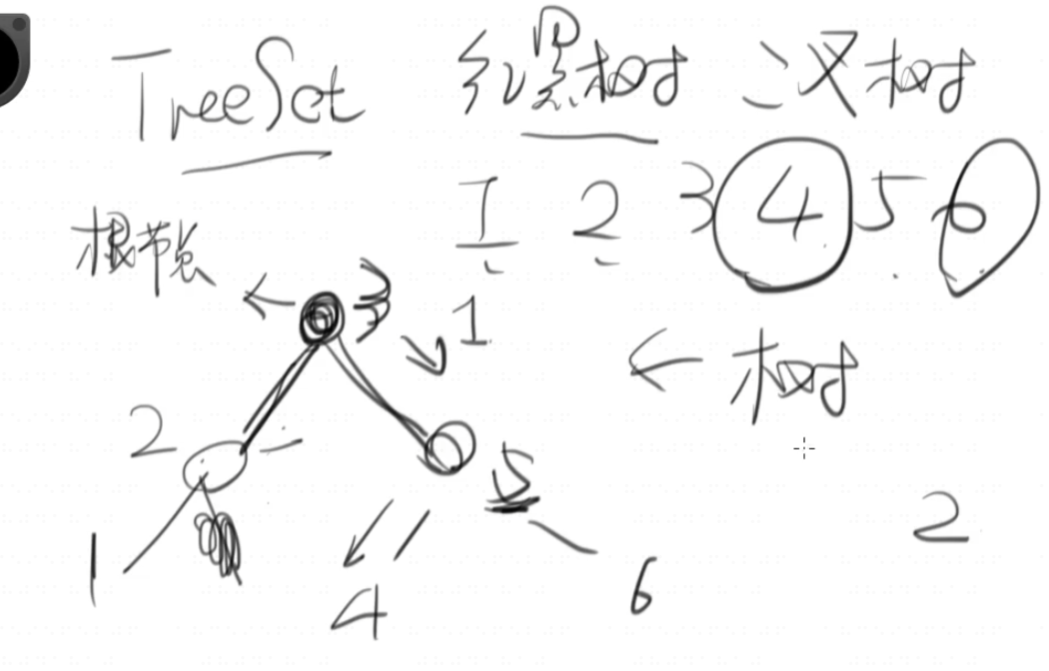 TreeSet 红黑树 二叉树
1 2 3 4 5 6
根节点
3
1
树
2
5
2
1
4
6